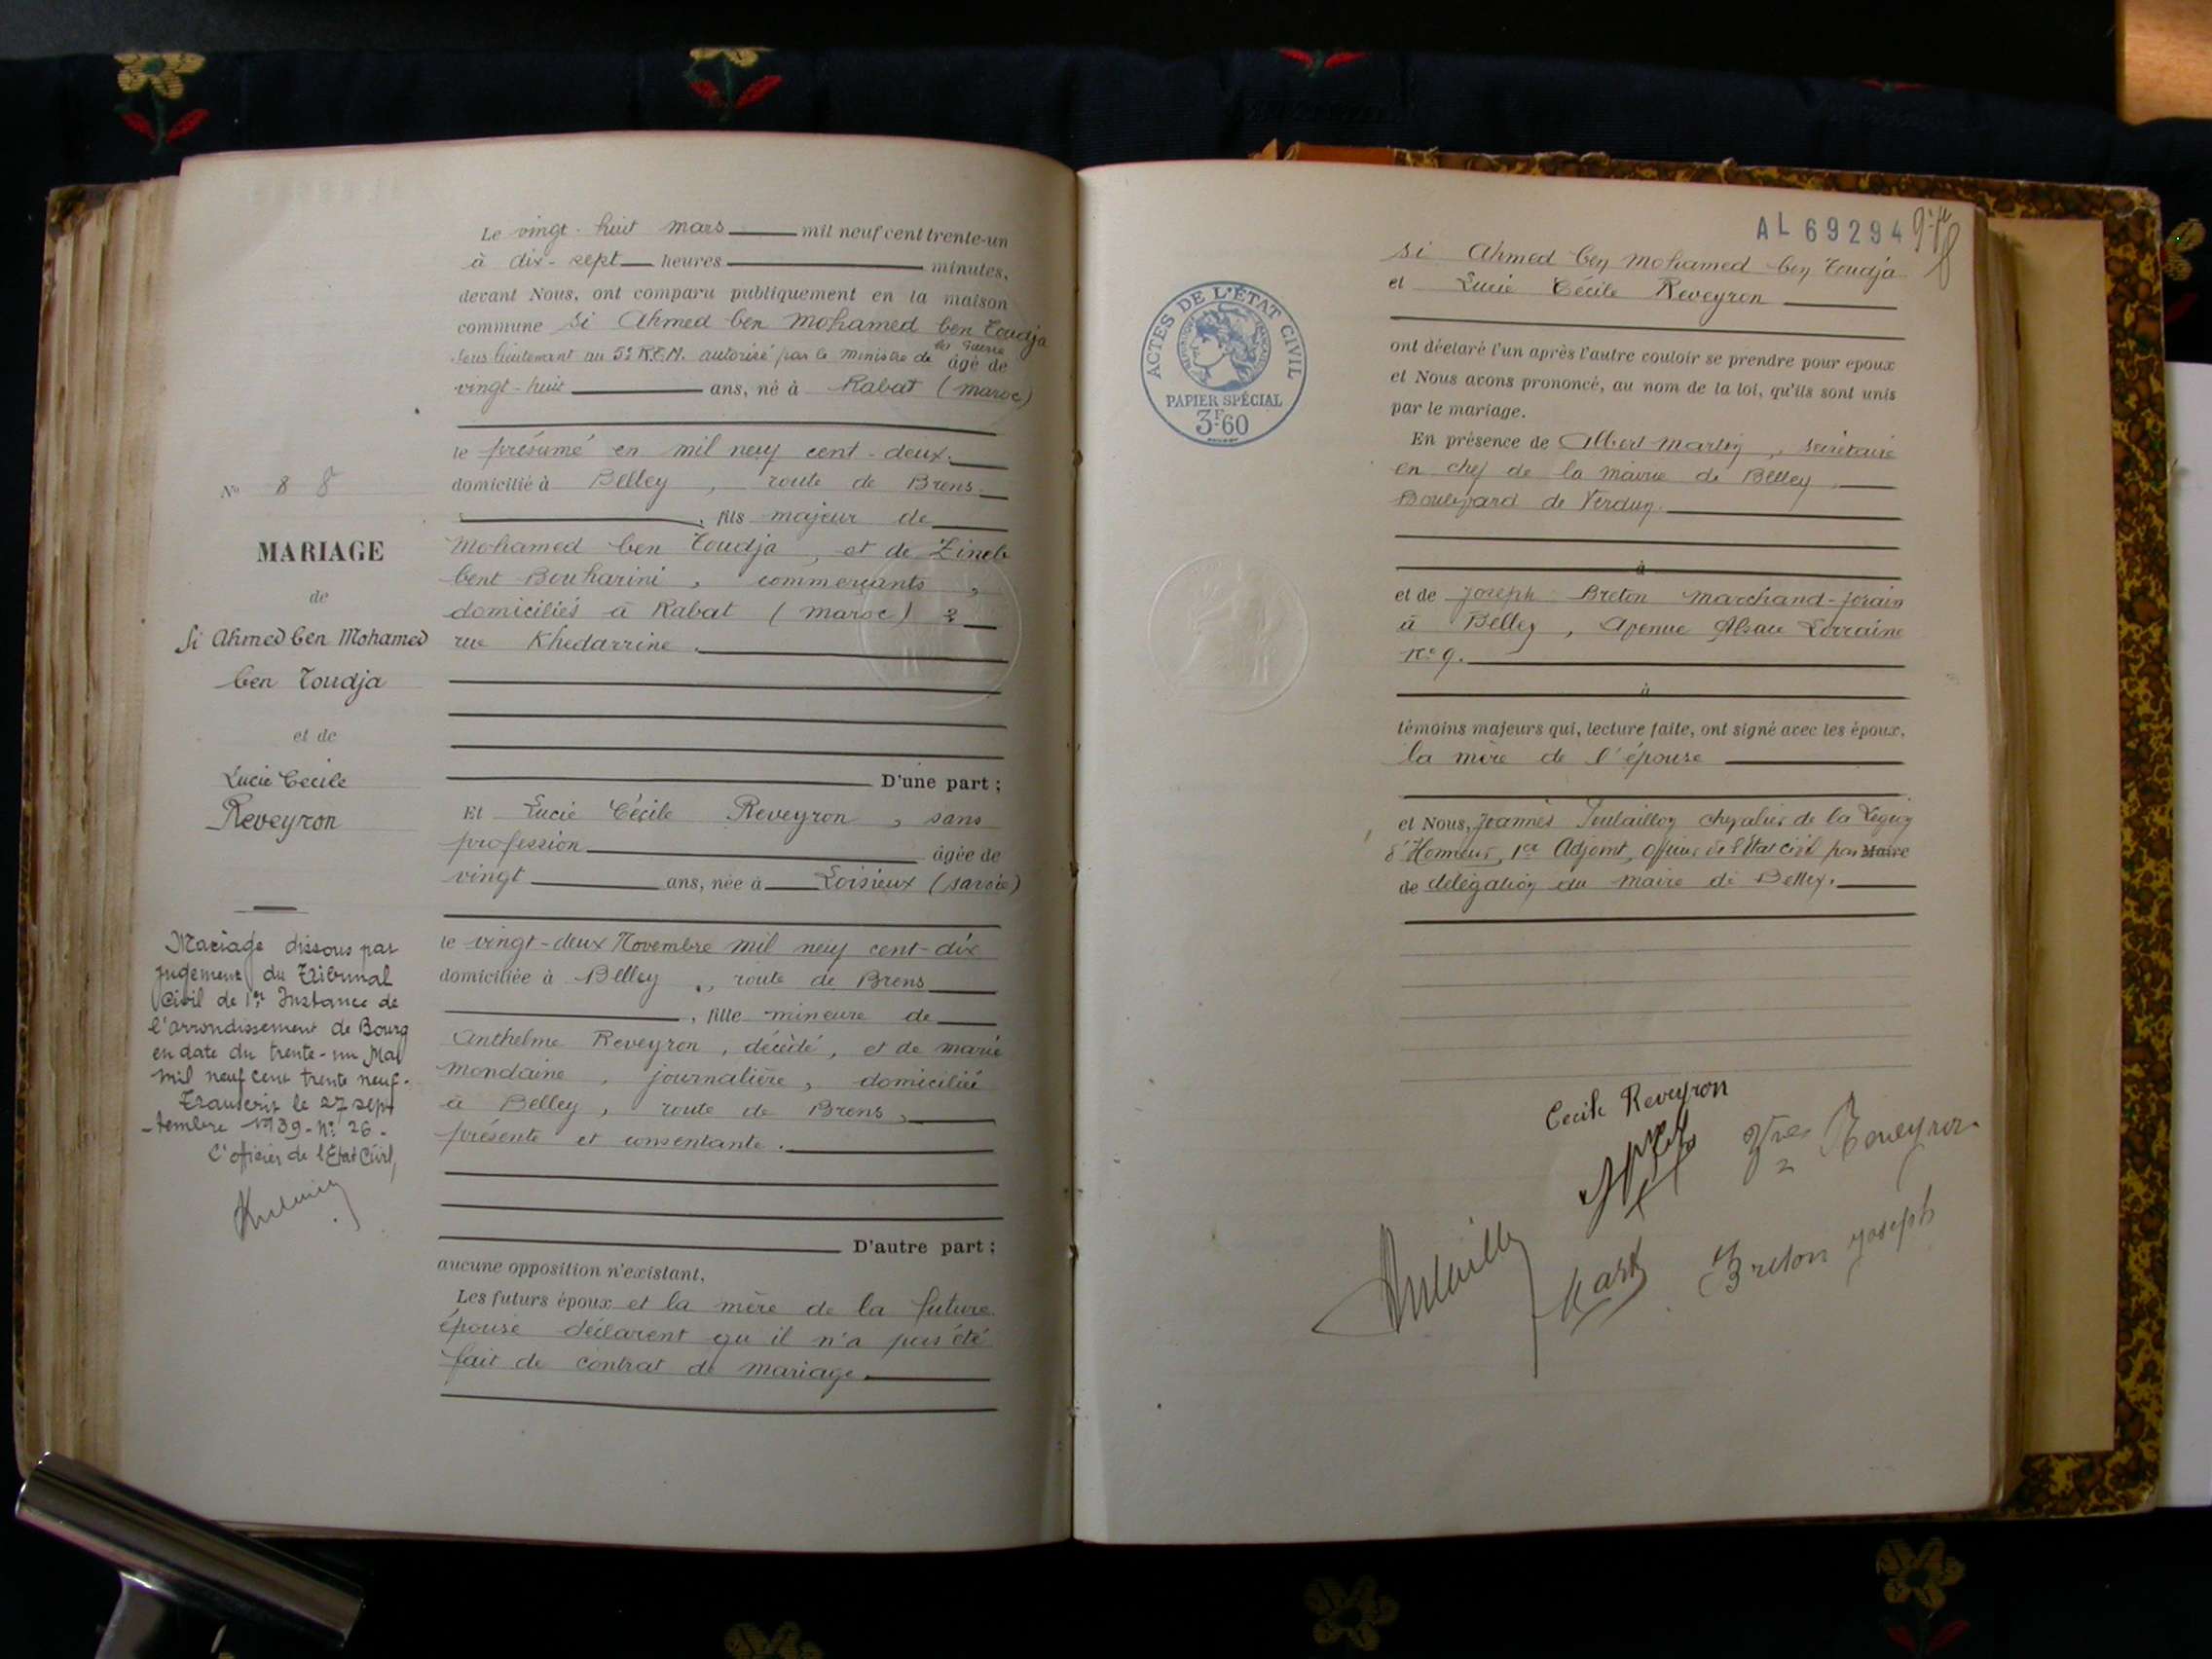 N° 8 8
MARIAGE
de
Si Ahmed ben Mohamed
ben Toudja
et de
Lucie Cécile
Reveyron
Mariage dissous par
jugement du Tribunal
Civil de 1ère Instance de
l'arrondissement de Bourg
en date du trente-un Mai
mil neuf cent trente neuf.
Transcrit le 27 sep-
-tembre 1939 - N° 26 -
L'officier de l'Etat Civil,
Le vingt-huit mars mil neuf cent trente-un
à dix-sept heures minutes,
devant Nous, ont comparu publiquement en la maison
commune Si Ahmed ben Mohamed ben Toudja
sous lieutenant au 5e autorisé par le ministre de la guerre âgé de
vingt-huit ans, né à Rabat (Maroc)
le présumé en mil neuf cent-deux.
domicilié à Belley, route de Brens
, fils majeur de
Mohamed ben Toudja, et de Zineb
bent Bouharini, commerçants,
domiciliés à Rabat (Maroc)
rue Khedarrine.
D'une part;
Et Lucie Cécile Reveyron, sans
profession âgée de
vingt ans, née à Loisieux (Savoie)
le vingt-deux Novembre mil neuf cent-dix
domiciliée à Belley, route de Brens
, fille mineure de
Anthelme Reveyron, décédé, et de Marie
Mondaine, journalière, domiciliée
à Belley, route de Brens,
présente et consentante.
D'autre part;
aucune opposition n'existant,
Les futurs époux et la mère de la future
épouse déclarent qu'il n'a pas été
fait de contrat de mariage.
AL 69294
Si Ahmed ben Mohamed ben Toudja
et Lucie Cécile Reveyron
ACTES DE L'ÉTAT CIVIL
RÉPUBLIQUE FRANÇAISE
PAPIER SPÉCIAL
3F60
ont déclaré l'un après l'autre vouloir se prendre pour époux
et Nous avons prononcé, au nom de la loi, qu'ils sont unis
par le mariage.
En présence de Albert Martin, secrétaire
en chef de la mairie de Belley,
Boulevard de Verdun.
à
et de Joseph Breton marchand-forain
à Belley, Avenue Alsace Lorraine
N° 9.
à
témoins majeurs qui, lecture faite, ont signé avec les époux,
la mère de l'épouse
et Nous, Joannès chevalier de la Légion
d'Honneur, 1er Adjoint, officier de l'Etat civil par Maire
de délégation du maire de Belley.
Cecile Reveyron
Vve Reveyron
Breton Joseph